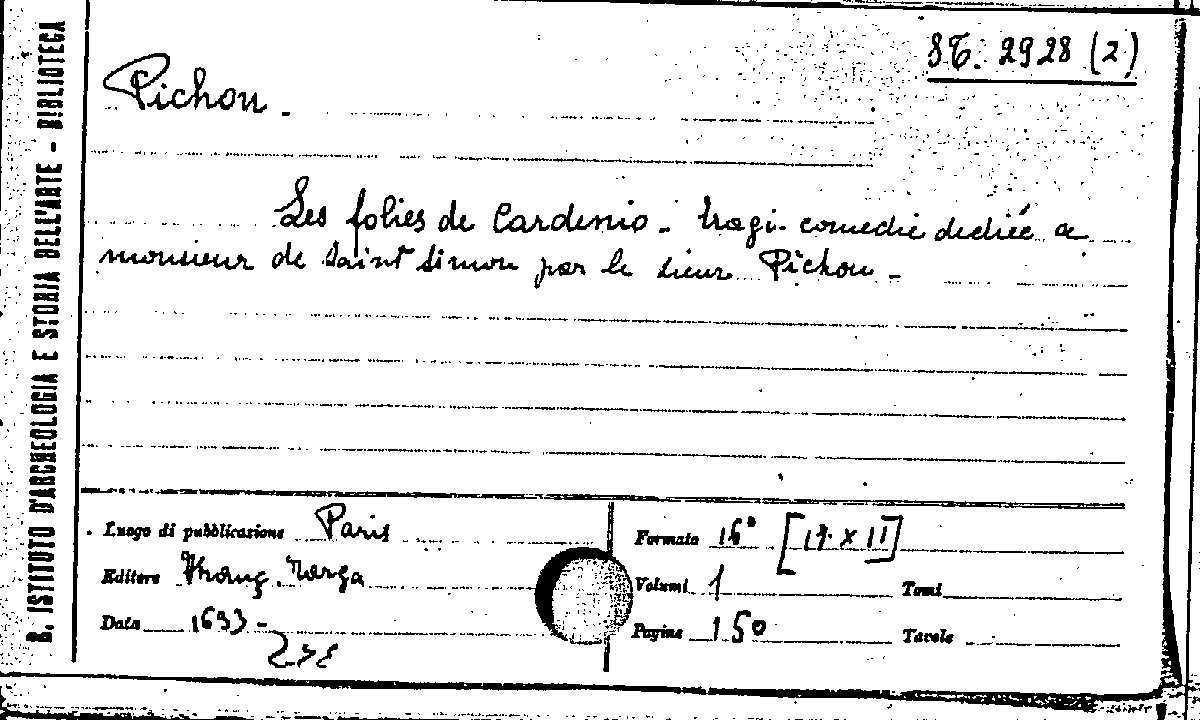 R. ISTITUTO D'ARCHEOLOGIA E STORIA DELL'ARTE - BIBLIOTECA
(2)
Pichou.
Les folies de Cardenio - tragi-comedie dediée a
monsieur de Saint Simon par le sieur Pichou -
Luogo di pubblicazione Paris
Editore Targa
Data 1633 -
Formato 16° [17 x 11]
Volumi 1 Tomi
Pagine 150 Tavole